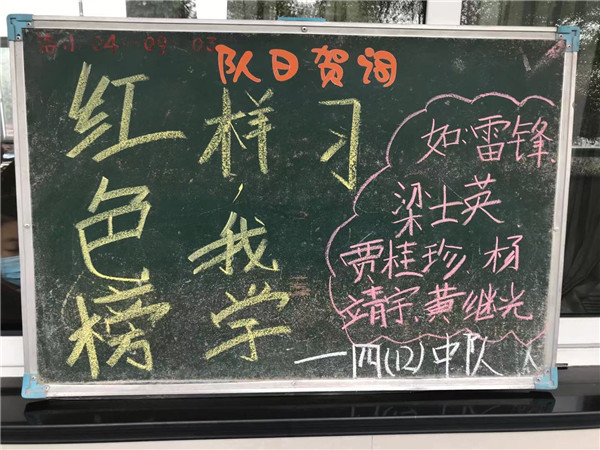 队日贺词
红色榜
样我学
习
如:雷锋、
梁士英
贾桂珍 杨
靖宇、黄继光
—四(12)中队